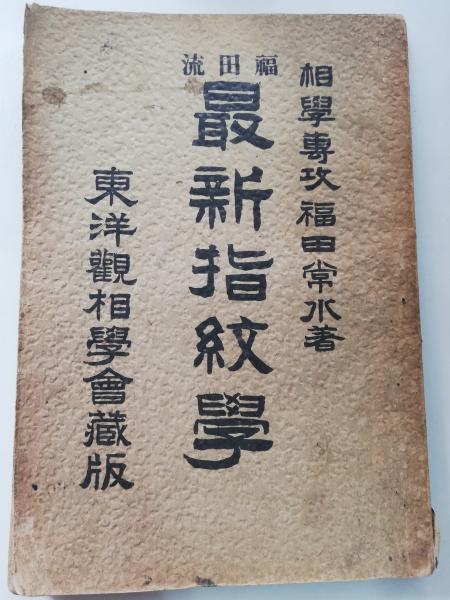 相學專攻福田常水著
福田流
最新指紋學
東洋觀相學會藏版